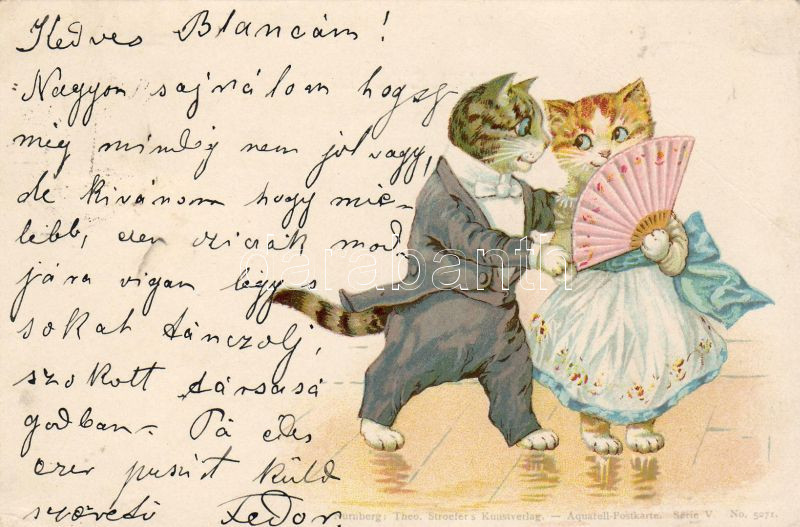 Kedves Blancám!
Nagyon sajnálom hogy
még mindég nem jól vagy,
de kivánom hogy mie-
lébb, ezen czicák mod
jára vigan légy s
sokat tánczolj,
szokott társasá
godban. Pá édes
ezer pusit küld
szerető Fedor.
darabanth
Nürnberg: Theo. Stroefer's Kunstverlag. — Aquarell-Postkarte. Serie V. No. 5071.